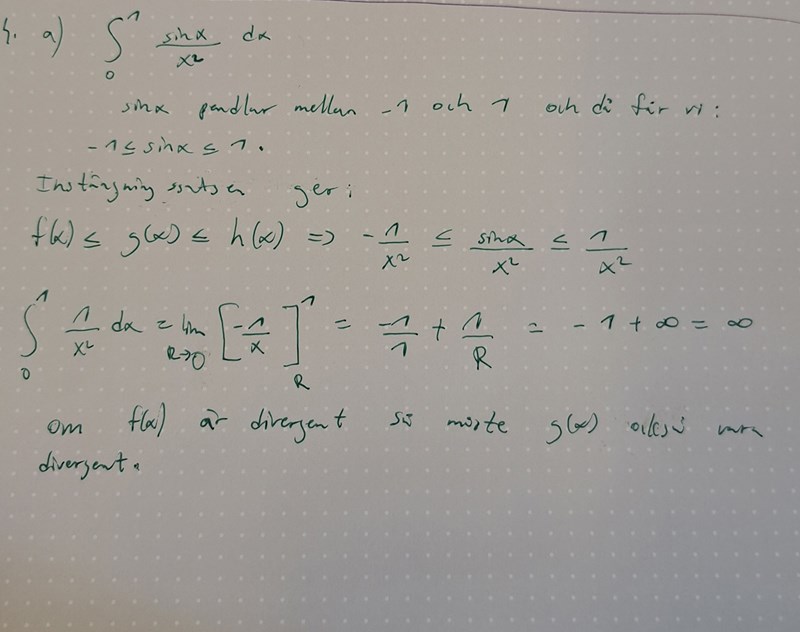 4. a) ∫₀¹ sinx/x² dx
sinx pendlar mellan -1 och 1 och då får vi:
-1 ≤ sinx ≤ 1.
Instängning satsen ger:
f(x) ≤ g(x) ≤ h(x) => -1/x² ≤ sinx/x² ≤ 1/x²
∫₀¹ 1/x² dx = lim R→0 [-1/x]¹_R = -1/1 + 1/R = -1 + ∞ = ∞
om f(x) är divergent så måste g(x) också vara
divergent.